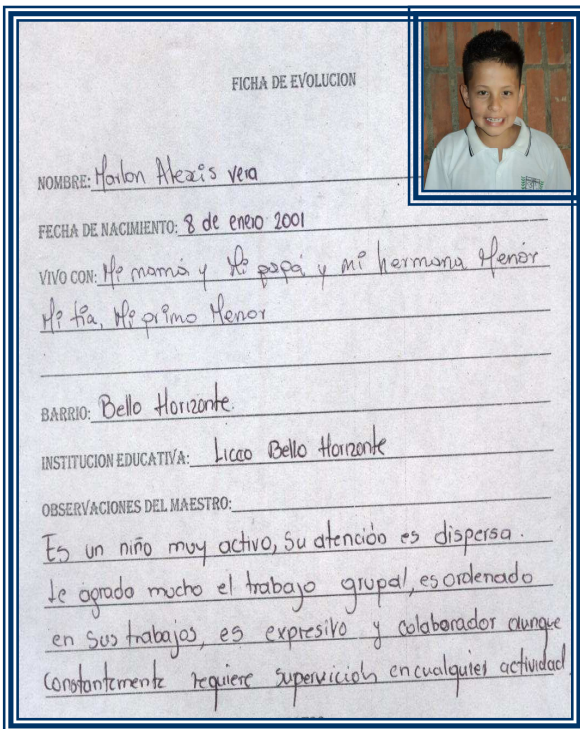 FICHA DE EVOLUCION
NOMBRE: Marlon Alexis vera
FECHA DE NACIMIENTO: 8 de enero 2001
VIVO CON: Mi mamá y Mi papá y mi hermana Menor
Mi tia, Mi primo Menor
BARRIO: Bello Horizonte.
INSTITUCION EDUCATIVA: Liceo Bello Horizonte
OBSERVACIONES DEL MAESTRO:
Es un niño muy activo, Su atención es dispersa.
Le agrada mucho el trabajo grupal, es ordenado
en sus trabajos, es expresivo y colaborador aunque
Constantemente requiere supervición en cualquier actividad